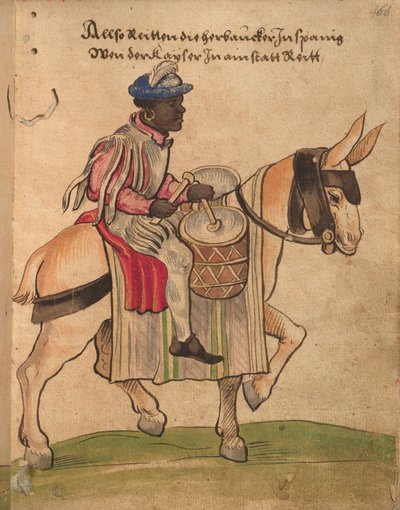 Allso Reitten die herbaucker In spanig
Wen der Kayser In ain statt Reitt